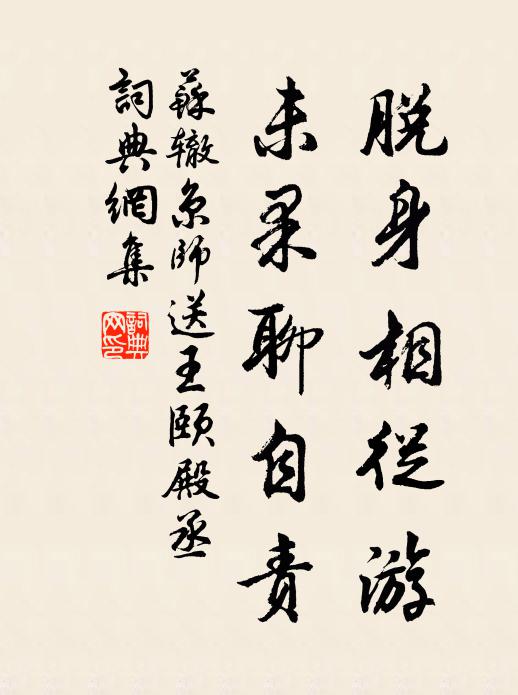 脱身相從游
未果聊自责
蘇辙京師送王颐殿丞
詞典網集
詞典
网印